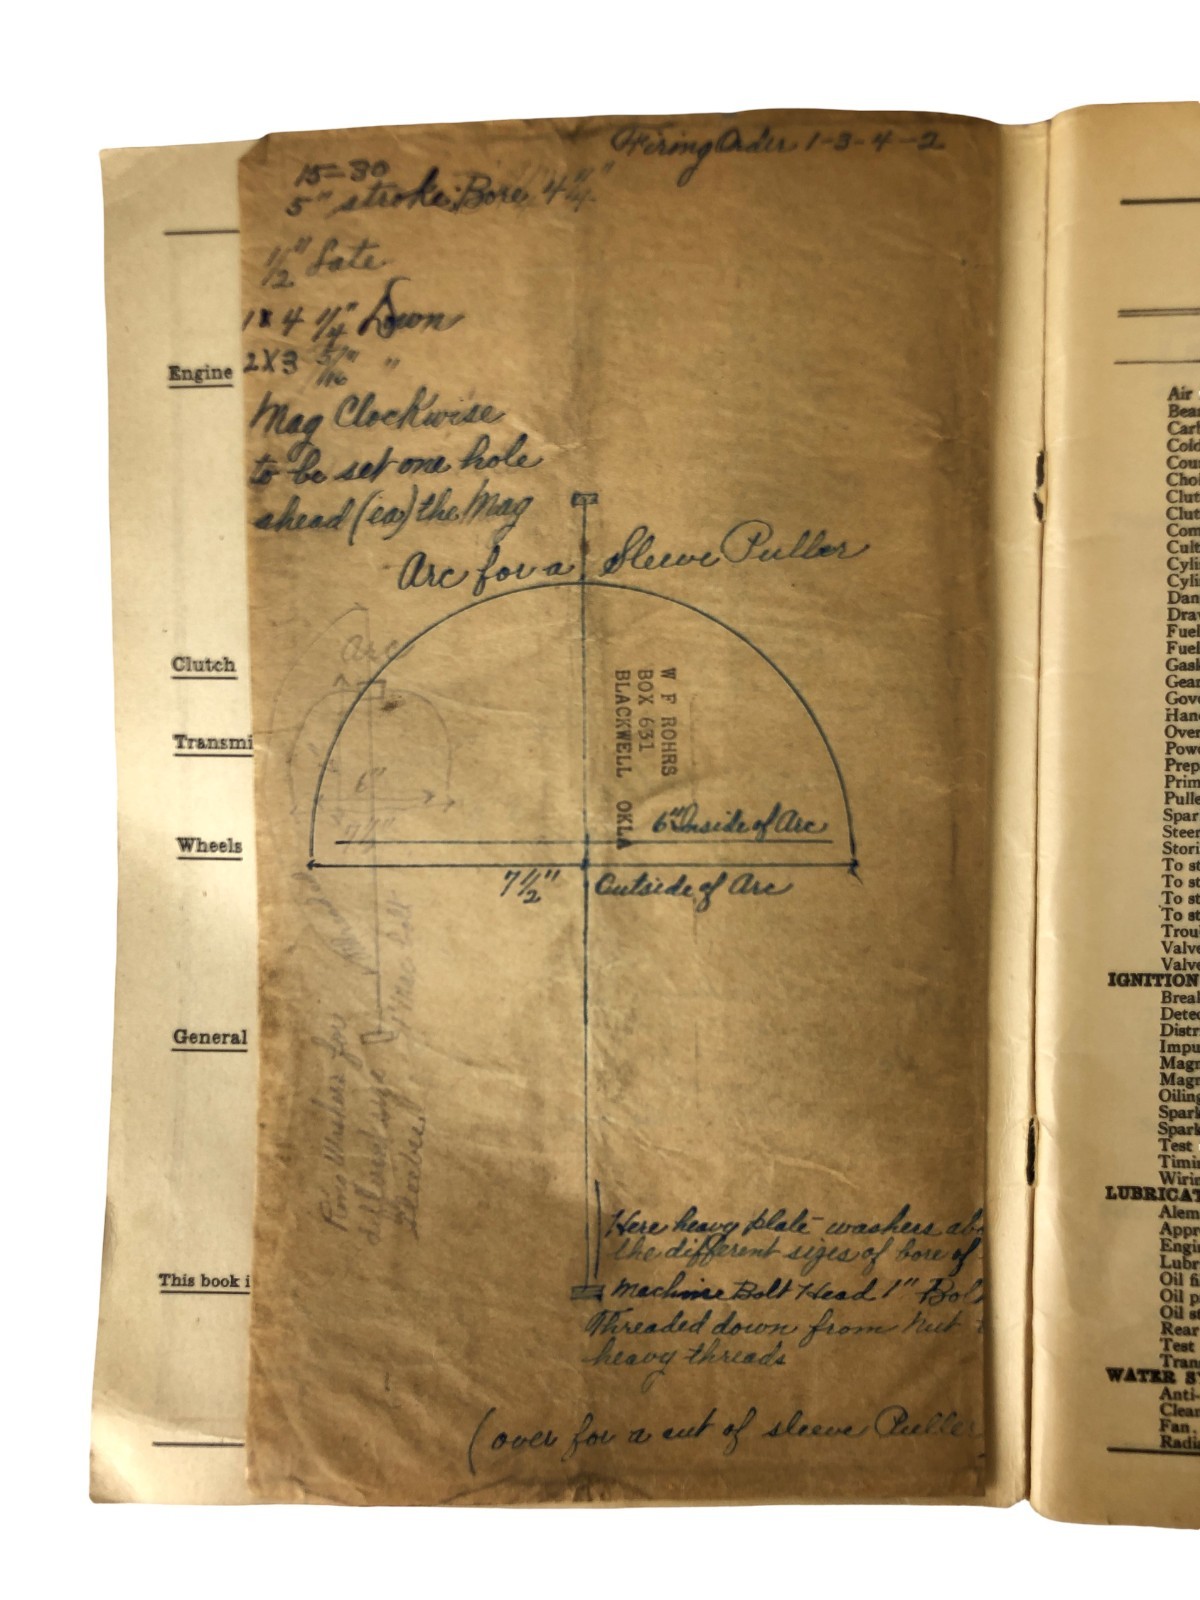 Firing Order 1-3-4-2
15-30
5" stroke Bore 4
1/2" Late
1 X 4 1/4" Down
2 X 3 5/16" "
Mag Clockwise
to be set one hole
ahead (ea) the Mag
Arc for a Sleeve Puller
Arc
6"
7 1/2"
W F ROHRS
BOX 631
BLACKWELL OKLA
6" Inside of Arc
7 1/2" Outside of Arc
Here heavy plate washers
the different sizes of bore of
Machine Bolt Head 1"
Threaded down from Nut
heavy threads
(over for a cut of sleeve Puller
Engine
Clutch
Transmi
Wheels
General
This book i
Air
Bea
Car
Cold
Cou
Cho
Clut
Clut
Com
Cult
Cyli
Cyli
Dan
Dra
Fuel
Fuel
Gask
Gear
Gov
Hand
Over
Powe
Prep
Prim
Pulle
Spar
Steer
Stori
To st
To st
To st
To st
Trou
Valve
Valve
IGNITION
Break
Dete
Distr
Impu
Magn
Magn
Oiling
Spark
Spark
Test
Timi
Wirin
LUBRICAT
Alem
Appr
Engi
Lubr
Oil fi
Oil p
Oil st
Rear
Test
Tran
WATER S
Anti-
Clean
Fan.
Radi